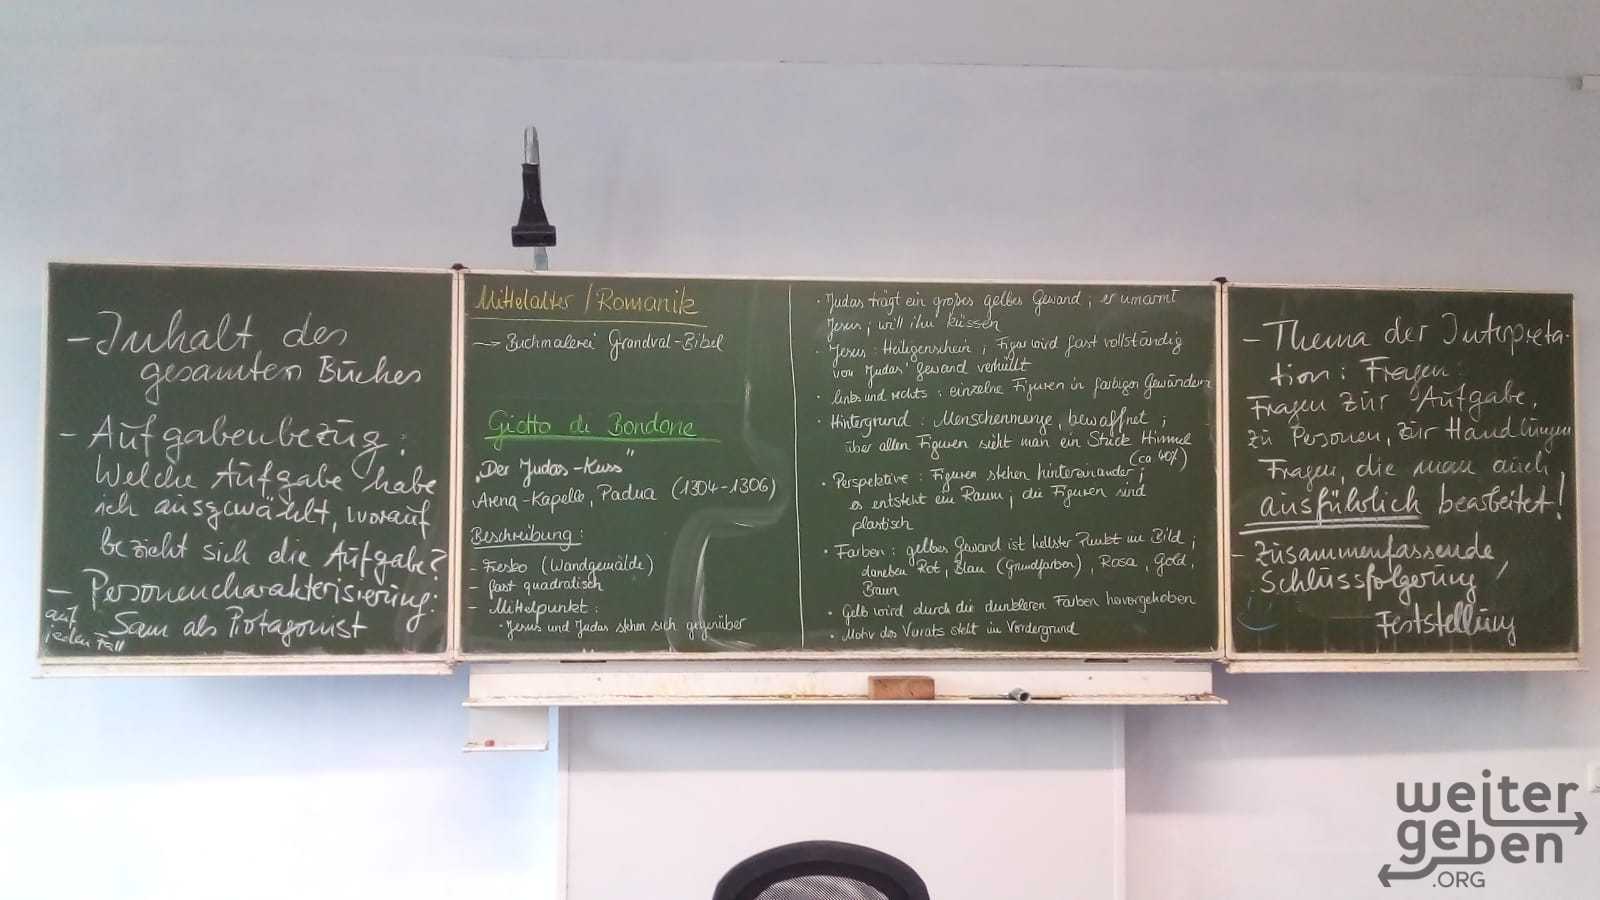 - Inhalt des
gesamten Buches
- Aufgabenbezug:
Welche Aufgabe habe
ich ausgewählt, worauf
bezieht sich die Aufgabe?
- Personencharakterisierung:
auf
jeden Fall
Sam als Protagonist
Mittelalter / Romanik
→ Buchmalerei Grandval-Bibel
Giotto di Bondone
„Der Judas-Kuss"
Arena-Kapelle, Padua (1304-1306)
Beschreibung:
- Fresko (Wandgemälde)
- fast quadratisch
- Mittelpunkt:
· Jesus und Judas stehen sich gegenüber
· Judas trägt ein großes gelbes Gewand; er umarmt
Jesus; will ihn küssen
· Jesus: Heiligenschein; Figur wird fast vollständig
von Judas' Gewand verhüllt
· links und rechts: einzelne Figuren in farbigen Gewändern
· Hintergrund: Menschenmenge, bewaffnet;
über allen Figuren sieht man ein Stück Himmel
(ca 40%)
· Perspektive: Figuren stehen hintereinander;
es entsteht ein Raum; die Figuren sind
plastisch
· Farben: gelbes Gewand ist hellster Punkt im Bild;
daneben Rot, Blau (Grundfarben), Rosa, Gold,
Braun
· Gelb wird durch die dunkleren Farben hervorgehoben
· Motiv des Verrats steht im Vordergrund
- Thema der Interpreta-
tion: Fragen:
Fragen zur Aufgabe,
zu Personen, zur Handlung
Fragen, die man auch
ausführlich bearbeitet!
- Zusammenfassende
Schlussfolgerung /
Feststellung
weiter
geben
.ORG